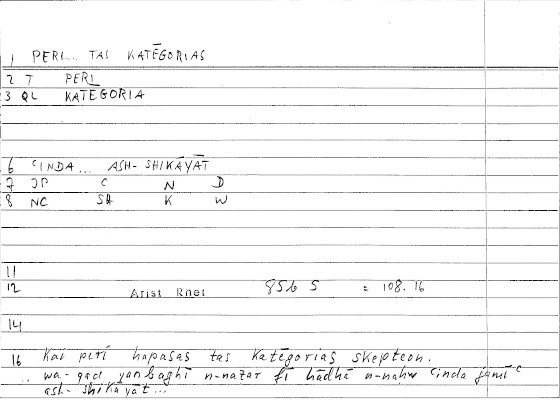 1 PERI... TAS KATĒGORIAS
2 T PERI
3 QL KATEGORIA
6 ʿINDA... ASH-SHIKĀYĀT
7 JP C N D
8 NC SH K W
11
12 Arist Rhet 856 5 = 108.16
14
16 Kai peri hapasas tas Katēgorias skepteon.
.. wa-qad yanbaghī n-naẓar fī hādhā n-naḥw ʿinda jamīʿ
ash-shikāyāt...